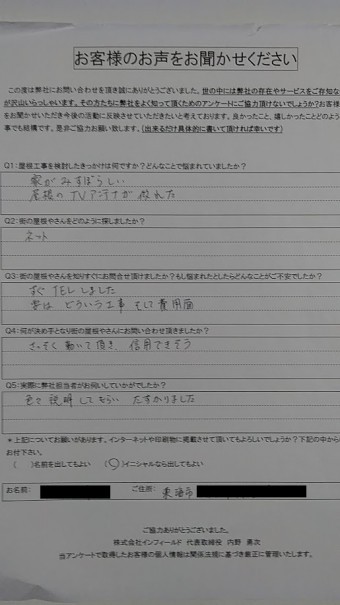 お客様のお声をお聞かせください
この度は弊社にお問い合わせを頂き誠にありがとうございます。世の中には弊社の存在やサービスをご存知な
が沢山いらっしゃいます。その方たちに弊社をよく知って頂くためのアンケートにご協力頂けないでしょうか?お客様
をお聞かせいただき今後の活動に反映させていただきたいと考えております。良かったこと、嬉しかったことどのよう
事でも結構です。是非ご協力お願い致します。(出来るだけ具体的に書いて頂ければ幸いです)
Q1:屋根工事を検討したきっかけは何ですか?どんなことで悩まれていましたか?
家がみすぼらしい
屋根のTVアンテナが
Q2:街の屋根やさんをどのように探しましたか?
ネット
Q3:街の屋根やさんを知りすぐにお問合せ頂けましたか?もし悩まれたとしたらどんなことがご不安でしたか?
すぐTELしました
どういう工事 そして費用面
Q4:何が決め手となり街の屋根やさんにお問い合わせ頂きましたか?
さっそく動いて頂き、信用できそう
Q5:実際に弊社担当者がお伺いしていかがでしたか?
色々説明してもらい たすかりました
*上記についてお願いがあります。インターネットや印刷物に掲載させて頂いてもよろしいでしょうか?下記の中から
お付下さい。
( )名前を出してもよい (○)イニシャルなら出してもよい
お名前: ご住所: 東海市
ご協力ありがとうございました。
株式会社インフィールド 代表取締役 内野 勇次
当アンケートで取得したお客様の個人情報は関係法規に基づき厳正に管理いたします。